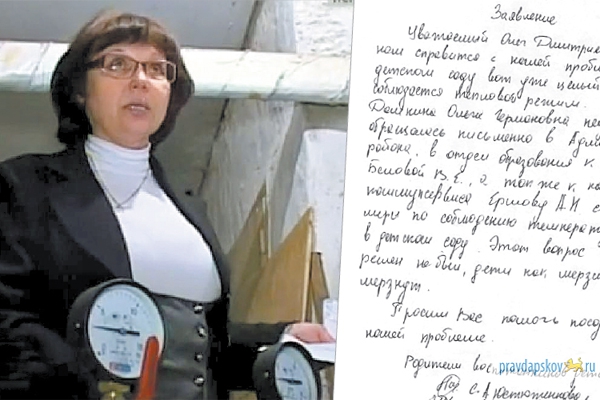 Заявление
Уважаемый Олег Дмитрие
нам справится с нашей пробле
детском саду вот уже целый
соблюдается тепловой режим.
Ольга Германовна
обращалась письменно в Адми
района, в отдел образования к
Беловой В. Г., а так же к на
коммунсервиса Ершову А.И с
меры по соблюдению температ
в детском саду. Этот вопрос
решен не был, дети как мерзл
мерзнут.
Просим Вас помочь
нашей проблеме.
Родители вос
pravdapskov.ru